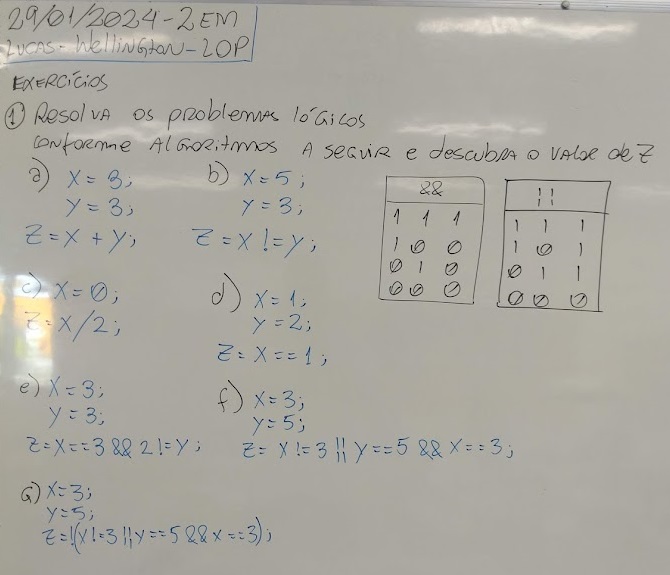 29/01/2024 - 2EM
LUCAS - Wellington - LOP
EXERCÍCIOS
1) Resolva os problemas lógicos
conforme Algoritmos A seguir e descubra o valor de Z
a) X = 3;
Y = 3;
Z = X + Y;
b) X = 5;
Y = 3;
Z = X != Y;
&&
1 1 1
1 0 0
0 1 0
0 0 0
||
1 1 1
1 0 1
0 1 1
0 0 0
c) X = 0;
Z = X/2;
d) X = 1;
Y = 2;
Z = X == 1;
e) X = 3;
Y = 3;
Z = X == 3 && 2 != Y;
f) X = 3;
Y = 5;
Z = X != 3 || Y == 5 && X == 3;
G) X = 3;
Y = 5;
Z = !(X != 3 || Y == 5 && X == 3);